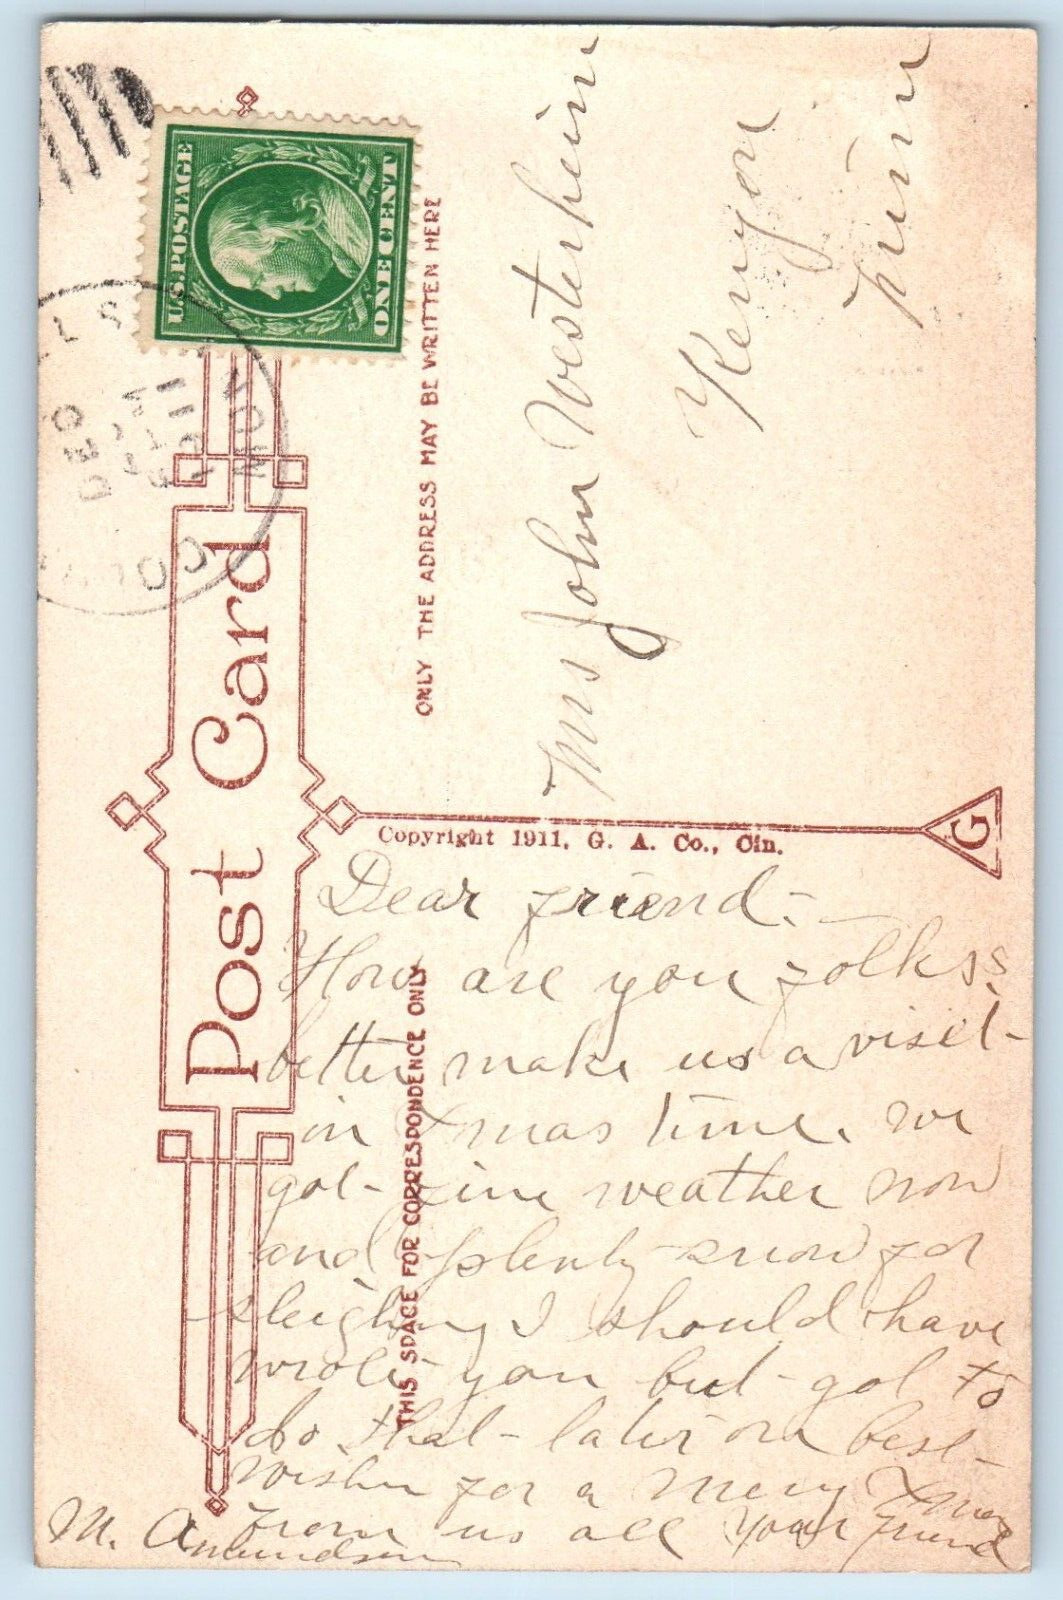 U.S. POSTAGE
ONE CENT
COL
LLS
MON
DEC
11
1911
Post Card
ONLY THE ADDRESS MAY BE WRITTEN HERE
Mrs John Westerheim
Kenyon
Minn
Copyright 1911, G. A. Co., Cin.
G
THIS SPACE FOR CORRESPONDENCE ONLY
Dear friend:—
How are you folkss
better make us a visit
in Xmas time. we
got fine weather now
and plenty snow for
sleighing I should have
wrote you but got to
do that later on best
wishes for a Merry Xmas
from us all your friend
M. Amundson